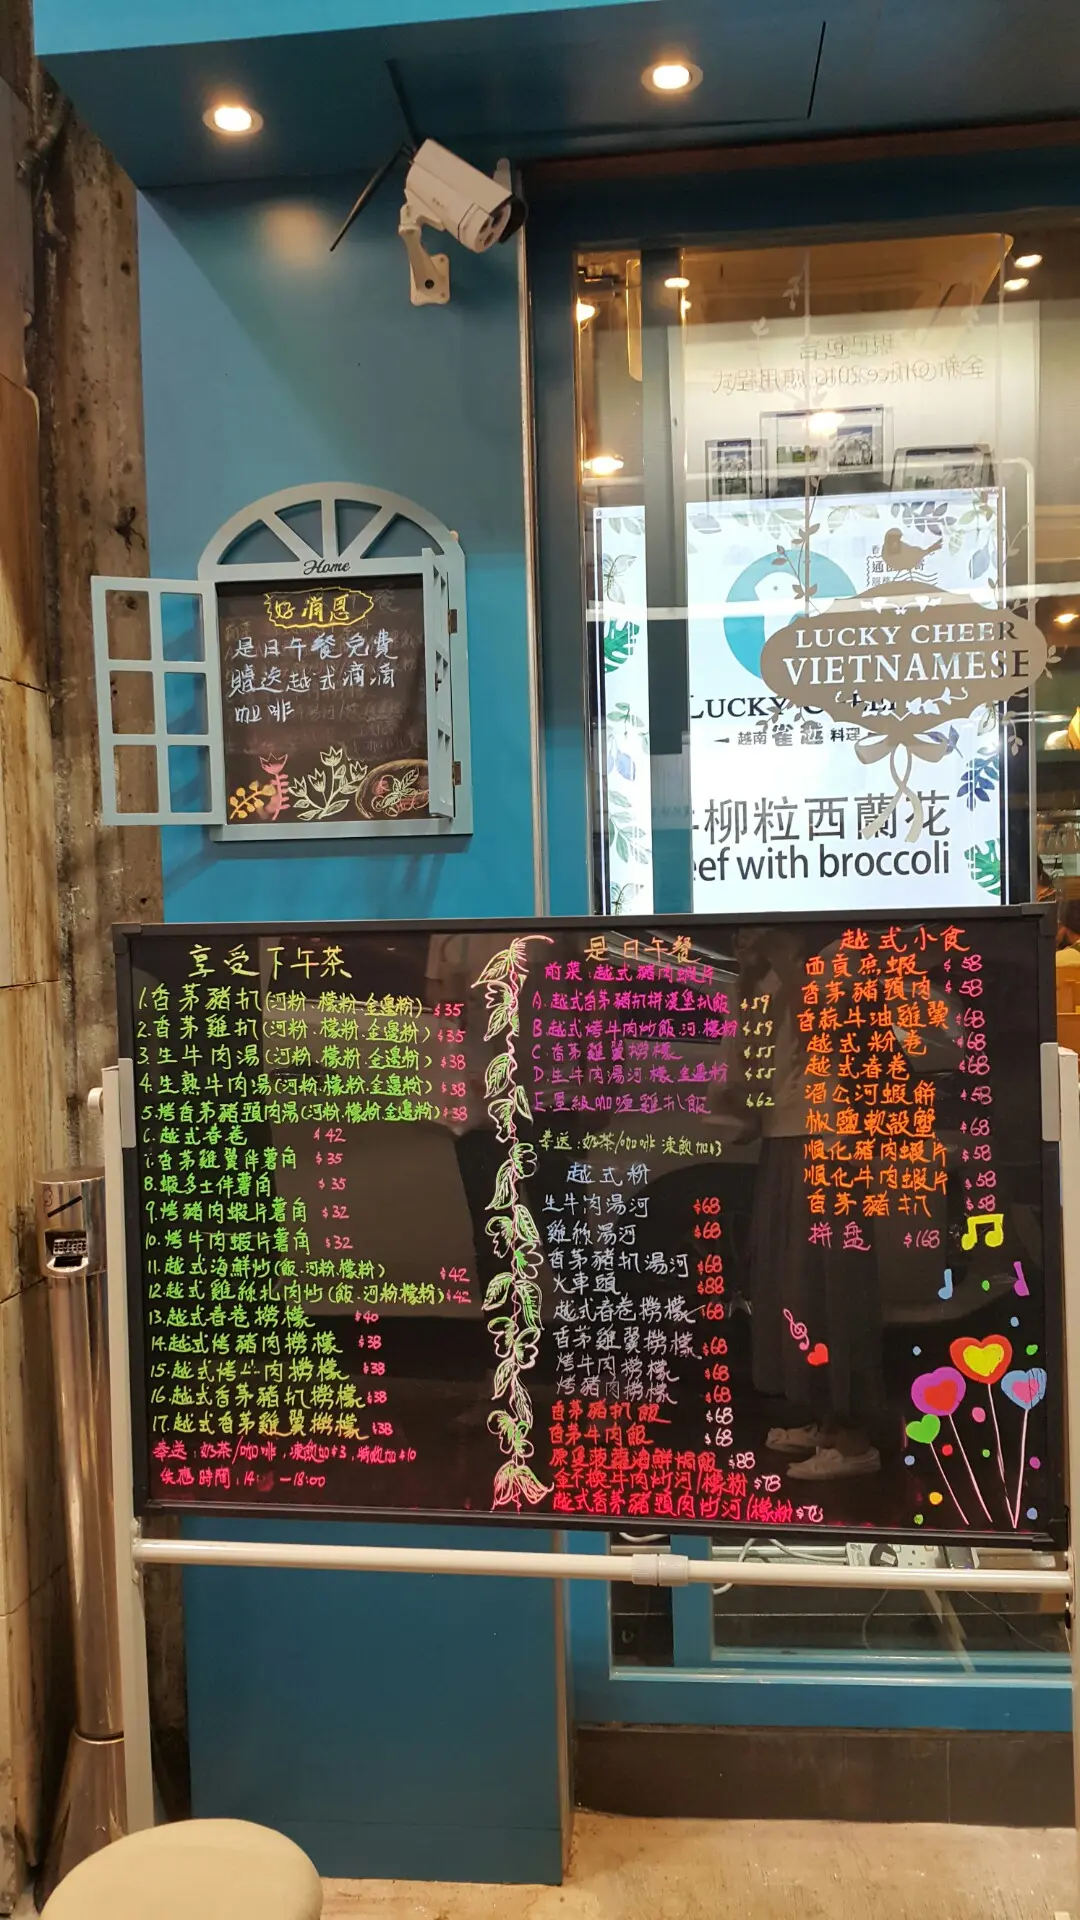 Home
好消息
是日午餐免費
贈送越式滴滴
咖啡
全新Office 2016應用程式
LUCKY CHEER
VIETNAMESE
LUCKY
越南雀遊料理
柳粒西蘭花
eef with broccoli
享受下午茶
1.香茅豬扒(河粉.檬粉.金邊粉) $35
2.香茅雞扒(河粉.檬粉.金邊粉) $35
3.生牛肉湯(河粉.檬粉.金邊粉) $38
4.生熟牛肉湯(河粉.檬粉.金邊粉) $38
5.烤香茅豬頸肉湯(河粉.檬粉.金邊粉) $38
6.越式春卷 $42
7.香茅雞翼伴薯角 $35
8.蝦多士伴薯角 $35
9.烤豬肉蝦片薯角 $32
10.烤牛肉蝦片薯角 $32
11.越式海鮮炒(飯.河粉.檬粉) $42
12.越式雞絲扎肉炒(飯.河粉.檬粉) $42
13.越式春卷撈檬 $40
14.越式烤豬肉撈檬 $38
15.越式烤牛肉撈檬 $38
16.越式香茅豬扒撈檬 $38
17.越式香茅雞翼撈檬 $38
奉送:奶茶/咖啡,凍飲加$3,特飲加$10
供應時間:14: —18:00
是日午餐
前菜:越式豬肉蝦片
A.越式香茅豬扒拼漢堡扒飯 $59
B.越式烤牛肉炒飯.河.檬粉 $59
C.香茅雞翼撈檬 $55
D.生牛肉湯河.檬.金邊粉 $55
E.星級咖喱雞扒飯 $62
奉送:奶茶/咖啡 凍飲加$3
越式粉
生牛肉湯河 $68
雞絲湯河 $68
香茅豬扒湯河 $68
火車頭 $88
越式春卷撈檬 $68
香茅雞翼撈檬 $68
烤牛肉撈檬 $68
烤豬肉撈檬 $68
香茅豬扒飯 $68
香茅牛肉飯 $68
原隻菠蘿海鮮焗飯 $88
金不換牛肉炒河/檬粉 $78
越式香茅豬頸肉炒河(檬粉) $78
越式小食
西貢蔗蝦 $58
香茅豬頸肉 $58
香蒜牛油雞翼 $68
越式粉卷 $68
越式春卷 $68
湄公河蝦餅 $58
椒鹽軟殼蟹 $68
順化豬肉蝦片 $58
順化牛肉蝦片 $58
香茅豬扒 $58
拼盘 $168